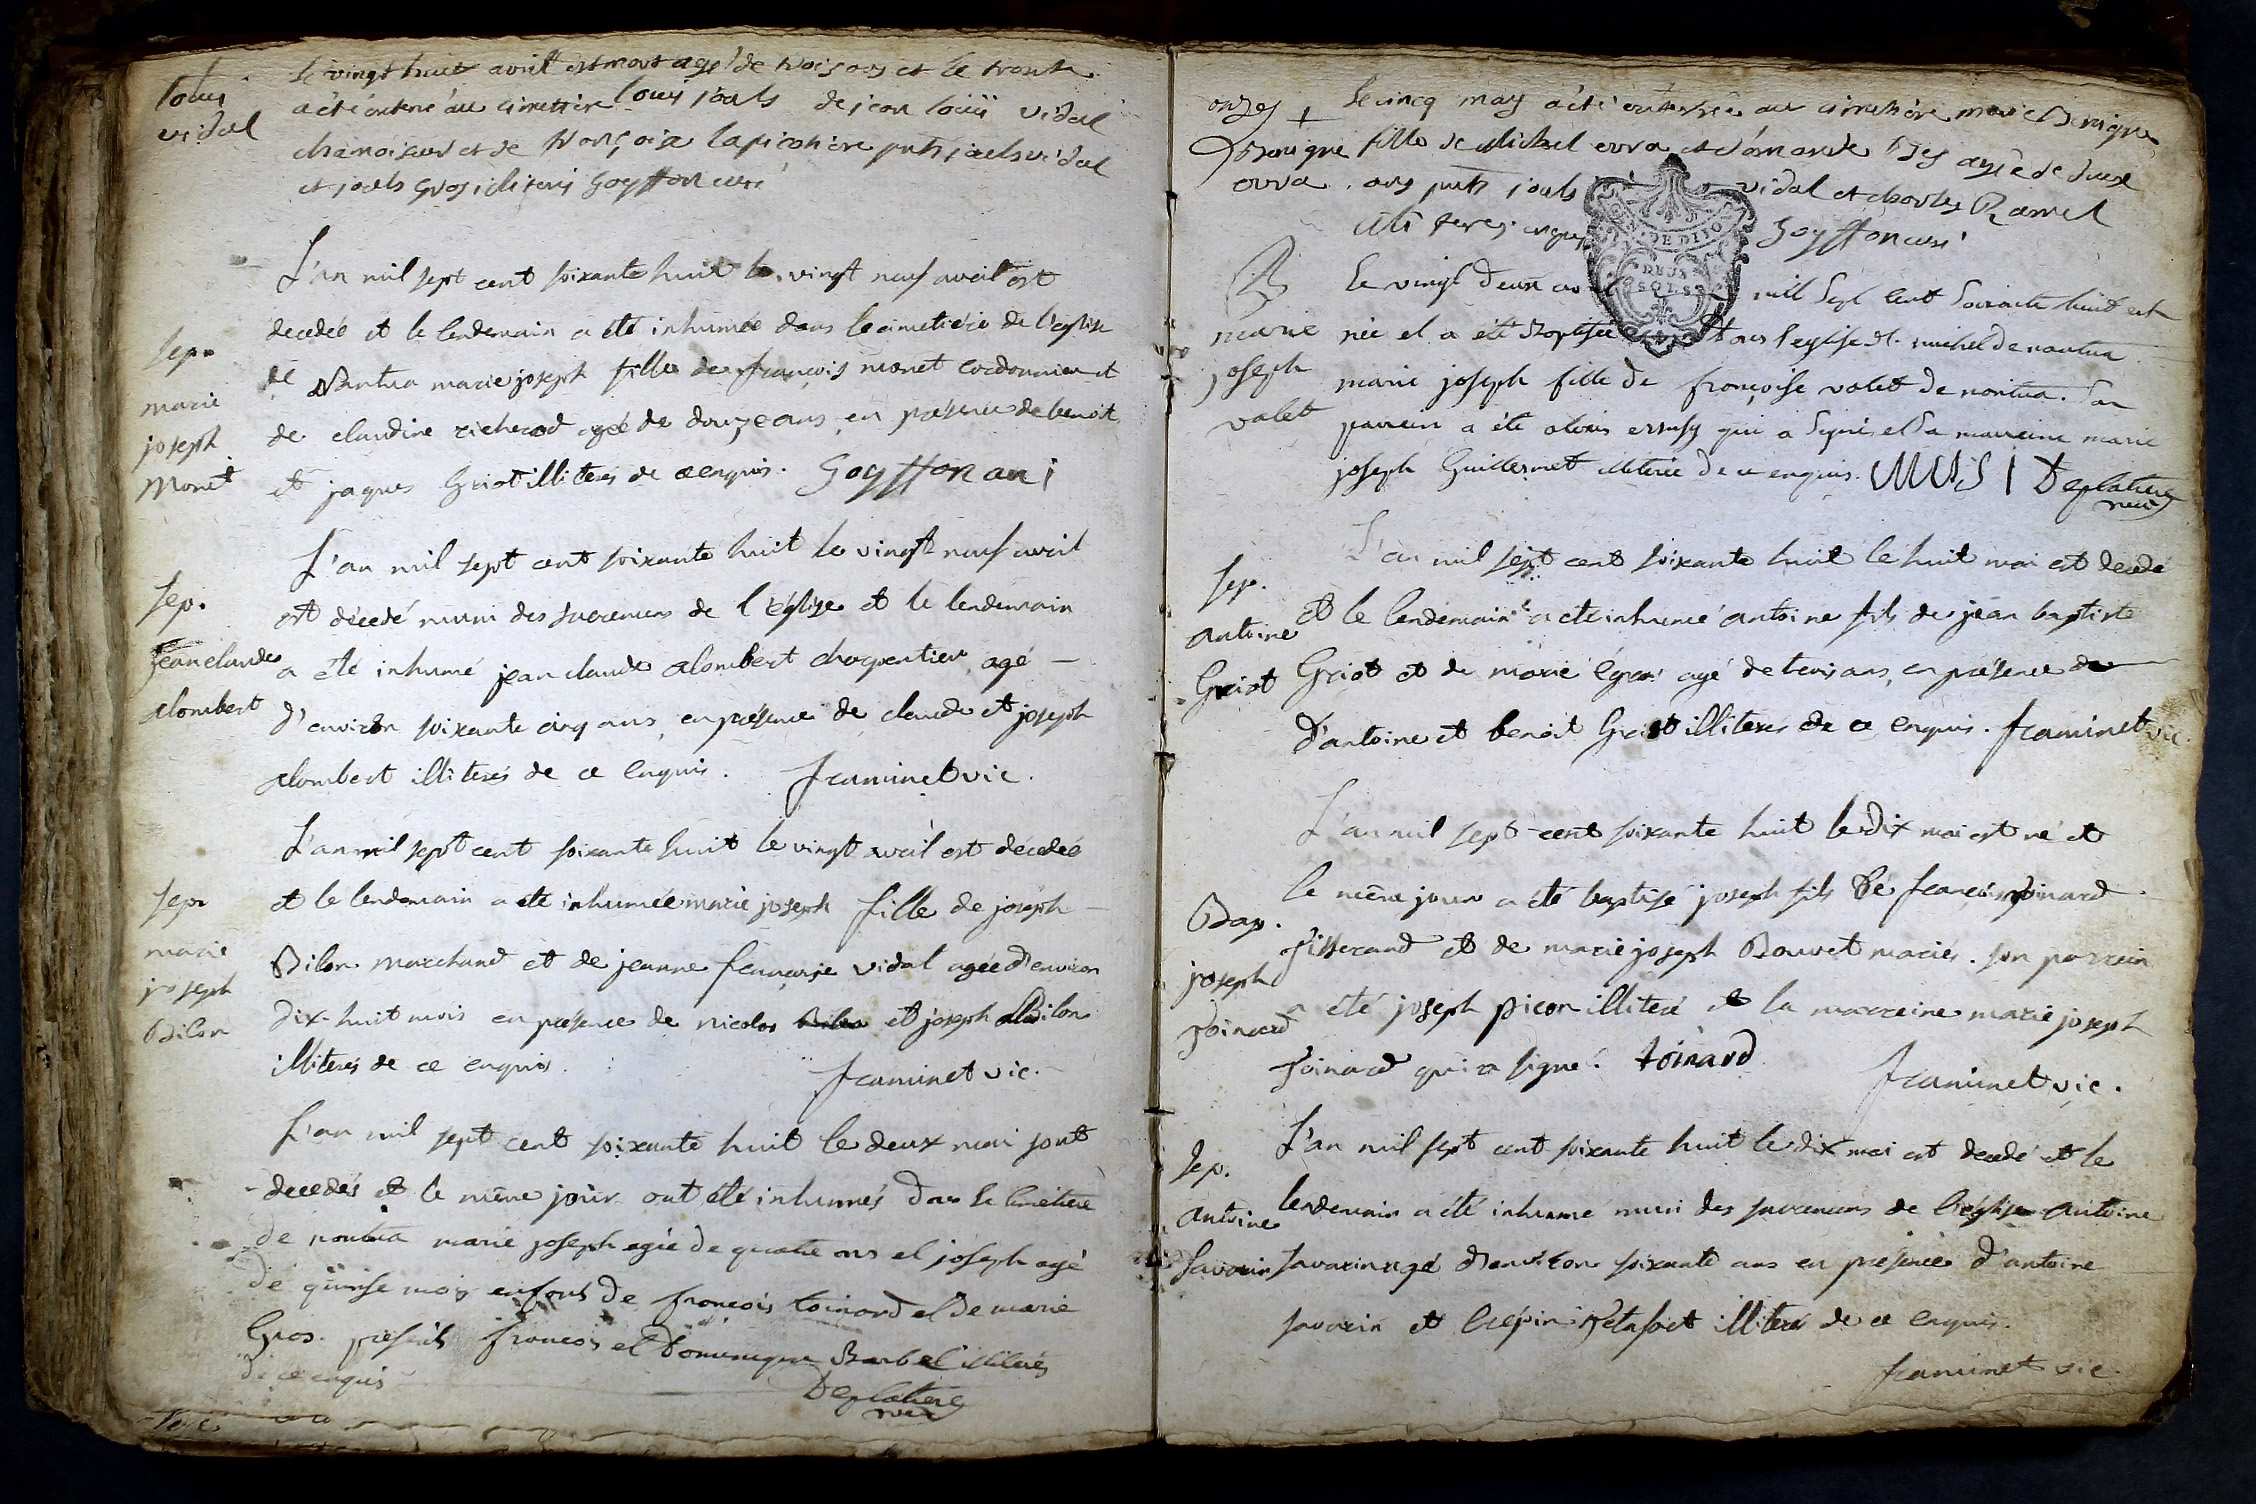 Louis
vidal
le vingt huit avril est mort agé de trois ans et le trente
a été enterré au cimettire Louis jouls de jean Louis vidal
chamoiseur et de françoise lapierre pnts jouls vidal
et jouls gros illiterés Goyffon curé
Sep.
marie
joseph
Monet
L'an mil sept cent soixante huit le vingt neuf avril est
decedée et le lendemain a été inhumée dans le cimetiére de l'eglise
de Nantua marie joseph fille de françois monet cordonnier et
de claudine richerod agée de douze ans en présence de benoit
et jaques Griot illiterés de ce enquis. Goyffon curé
Sep.
jean claude
alombert
L'an mil sept cent soixante huit le vingt neuf avril
est décedé muni des sacremens de l'église et le lendemain
a été inhumé jean claude alombert charpentier agé
d'environ soixante cinq ans, en présence de claude et joseph
alombert illiterés de ce enquis. framinet vic.
Sep.
marie
joseph
Bilon
L'an mil sept cent soixante huit le vingt avril est décedée
et le lendemain a été inhumée marie joseph fille de joseph
Bilon marchand et de jeanne françoise vidal agée d'environ
dix-huit mois en présence de nicolas et joseph Bilon
illiterés de ce enquis. framinet vic.
L'an mil sept cent soixante huit le deux mai sont
decedés et le même jour ont été inhumés dans le cimetiere
de nantua marie joseph agée de quatre ans et joseph agé
de quinse mois enfans de françois toinard et de marie
Gros. presents françois et Dominique Barbet illiterés
de ce enquis
Deplatiere
vic
Benigne
orra
Le cinq may a été enterrée au cimetière marie Benigne
fille de Michel orra et d'emande agée de deux
ans pnts jouls vidal et charles Ramel
illiteres enquis Goyffon curé
DE DIJO
DEUX
SOLS
B
marie
joseph
valet
Le vingt deux mil Sept Cent Soixante huit est
née et a été Baptisée dans l'eglise St. michel de nantua
marie joseph fille de françoise valet de nantua. Son
parrein a été qui a Signé et Sa marreine marie
joseph Guillermet illiterée de ce enquis. Deplatiere
vic
Sep.
antoine
Griot
L'an mil sept cent soixante huit le huit mai est decedé
et le lendemain a été inhumé antoine fils de jean baptiste
Griot et de marie agé de trois ans, en présence
d'antoine et benoit Griot illiterés de ce enquis. framinet vic.
Bap.
joseph
Toinard
L'an mil sept cent soixante huit le dix mai est né et
le même jour a été baptisé joseph fils de françois Toinard
Tisserand et de marie joseph Bouvet mariés. son parrein
a été joseph picon illiteré et la marreine marie joseph
Toinard qui a signé. toinard
framinet vic.
Sep.
antoine
Savarin
L'an mil sept cent soixante huit le dix mai est decedé et le
lendemain a été inhume muni des sacremens de l'église antoine
savarin agé d'environ soixante ans en présence d'antoine
savarin et Crépin illiterés de ce enquis.
framinet vic.